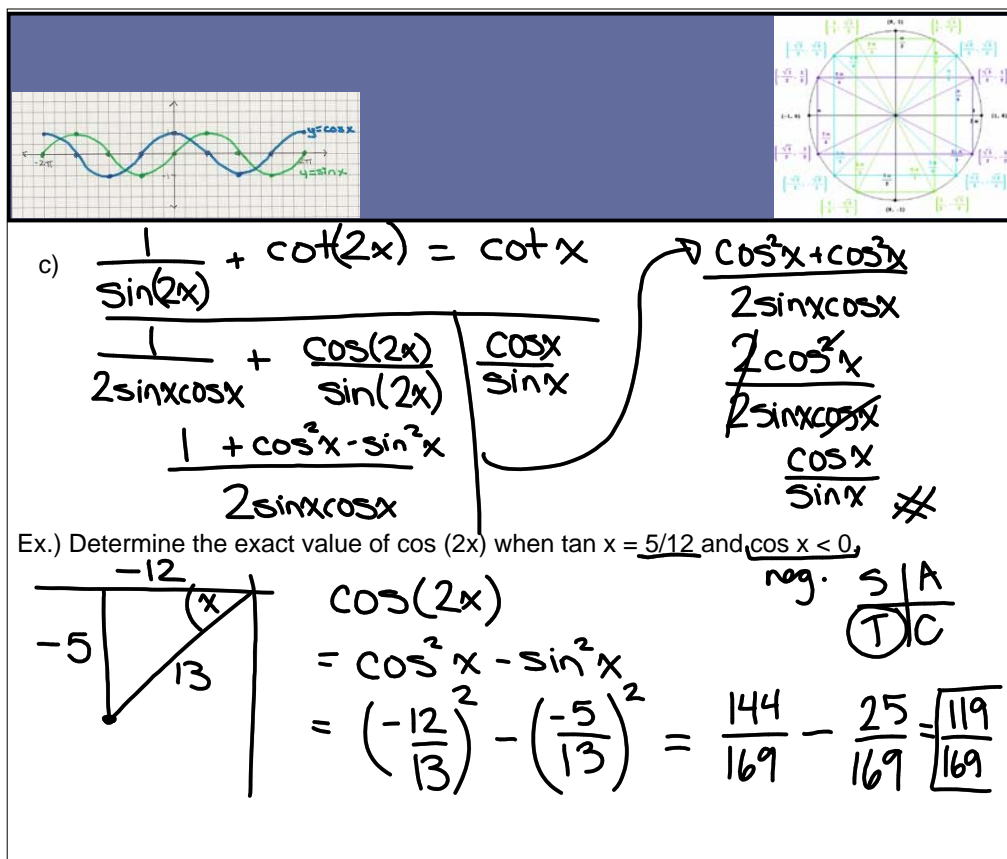 y=cosx
-2π
2π
y=sinx
(0, 1)
(-1, 0)
(0, -1)
c) 1/sin(2x) + cot(2x) = cot x
1/2sinxcosx + cos(2x)/sin(2x) | cosx/sinx
1 + cos²x - sin²x / 2sinxcosx
cos²x + cos²x / 2sinxcosx
2cos²x / 2sinxcosx
cosx / sinx
Ex.) Determine the exact value of cos (2x) when tan x = 5/12 and cos x < 0.
neg.
S | A
T | C
-12
x
-5
13
cos(2x)
= cos²x - sin²x
= (-12/13)² - (-5/13)² = 144/169 - 25/169 = 119/169